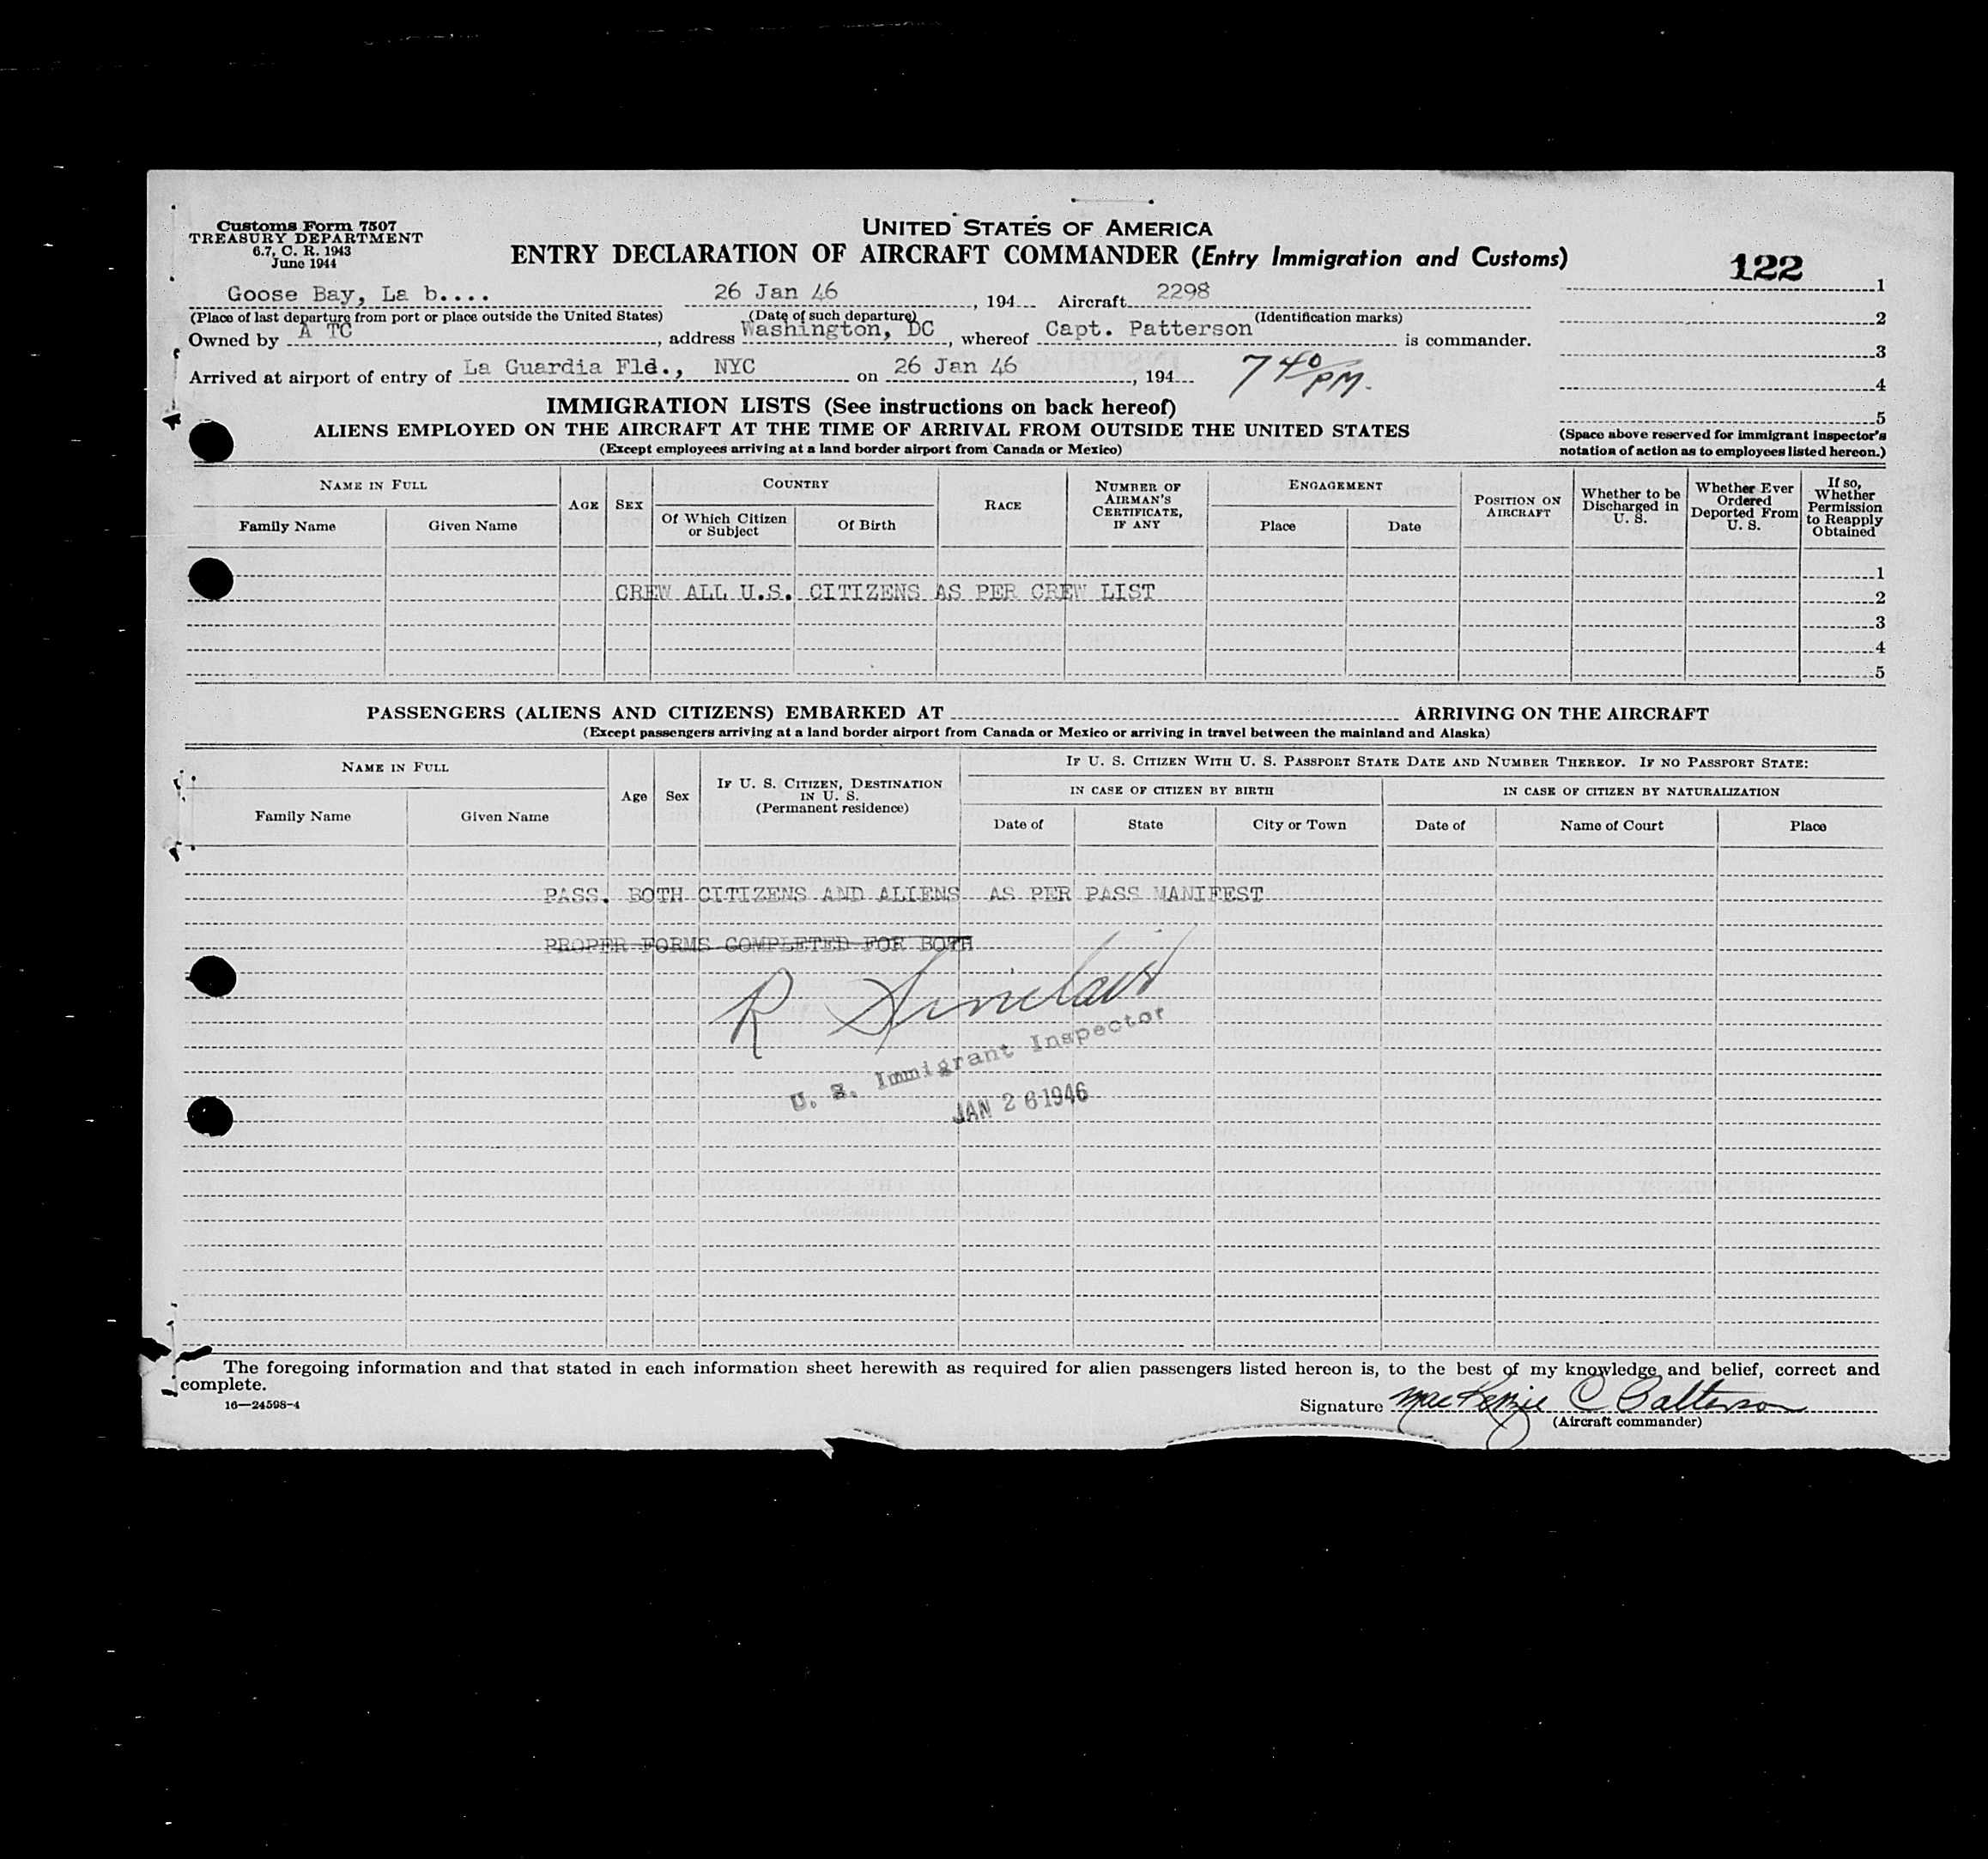 Customs Form 7507
TREASURY DEPARTMENT
6.7, C. R. 1943
June 1944
UNITED STATES OF AMERICA
ENTRY DECLARATION OF AIRCRAFT COMMANDER (Entry Immigration and Customs)
122
Goose Bay, La b.... 26 Jan 46, 194 Aircraft 2298
(Place of last departure from port or place outside the United States) (Date of such departure) (Identification marks)
Owned by A TC, address Washington, DC, whereof Capt. Patterson is commander.
Arrived at airport of entry of La Guardia Fld., NYC on 26 Jan 46, 194 7 40/PM.
1
2
3
4
5
(Space above reserved for immigrant inspector's
notation of action as to employees listed hereon.)
IMMIGRATION LISTS (See instructions on back hereof)
ALIENS EMPLOYED ON THE AIRCRAFT AT THE TIME OF ARRIVAL FROM OUTSIDE THE UNITED STATES
(Except employees arriving at a land border airport from Canada or Mexico)
NAME IN FULL
Family Name
Given Name
AGE
SEX
COUNTRY
Of Which Citizen
or Subject
Of Birth
RACE
NUMBER OF
AIRMAN'S
CERTIFICATE,
IF ANY
ENGAGEMENT
Place
Date
POSITION ON
AIRCRAFT
Whether to be
Discharged in
U. S.
Whether Ever
Ordered
Deported From
U. S.
If so,
Whether
Permission
to Reapply
Obtained
1
CREW ALL U.S. CITIZENS AS PER CREW LIST 2
3
4
5
PASSENGERS (ALIENS AND CITIZENS) EMBARKED AT ARRIVING ON THE AIRCRAFT
(Except passengers arriving at a land border airport from Canada or Mexico or arriving in travel between the mainland and Alaska)
NAME IN FULL
Family Name
Given Name
Age
Sex
IF U. S. CITIZEN, DESTINATION
IN U. S.
(Permanent residence)
IF U. S. CITIZEN WITH U. S. PASSPORT STATE DATE AND NUMBER THEREOF. IF NO PASSPORT STATE:
IN CASE OF CITIZEN BY BIRTH
Date of
State
City or Town
IN CASE OF CITIZEN BY NATURALIZATION
Date of
Name of Court
Place
PASS. BOTH CITIZENS AND ALIENS AS PER PASS MANIFEST
PROPER FORMS COMPLETED FOR BOTH
R Sinclair
U. S. Immigrant Inspector
JAN 26 1946
The foregoing information and that stated in each information sheet herewith as required for alien passengers listed hereon is, to the best of my knowledge and belief, correct and
complete.
16—24598-4
Signature MacKenzie C Patterson
(Aircraft commander)